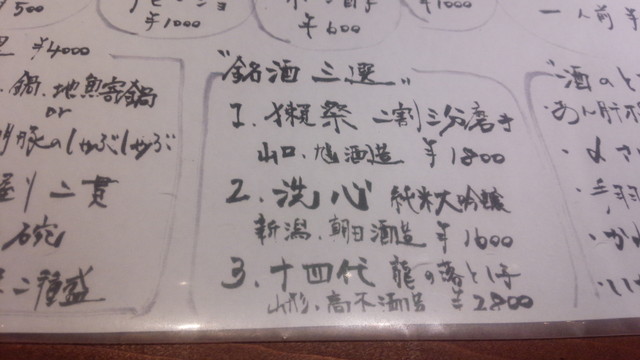 ¥500
¥1000
¥600
¥1000
一人前 ¥
¥4000
鍋、地魚寄鍋
or
豚のしゃぶしゃぶ
二貫
碗
二種盛
"銘酒三選"
1. 獺祭 二割三分磨き
山口、旭酒造 ¥1800
2. 洗心 純米大吟醸
新潟、朝日酒造 ¥1600
3. 十四代 龍の落とし子
山形、高木酒造 ¥2800
"酒のと
・あん肝ポ
・よさ
・手羽
・かに
・い